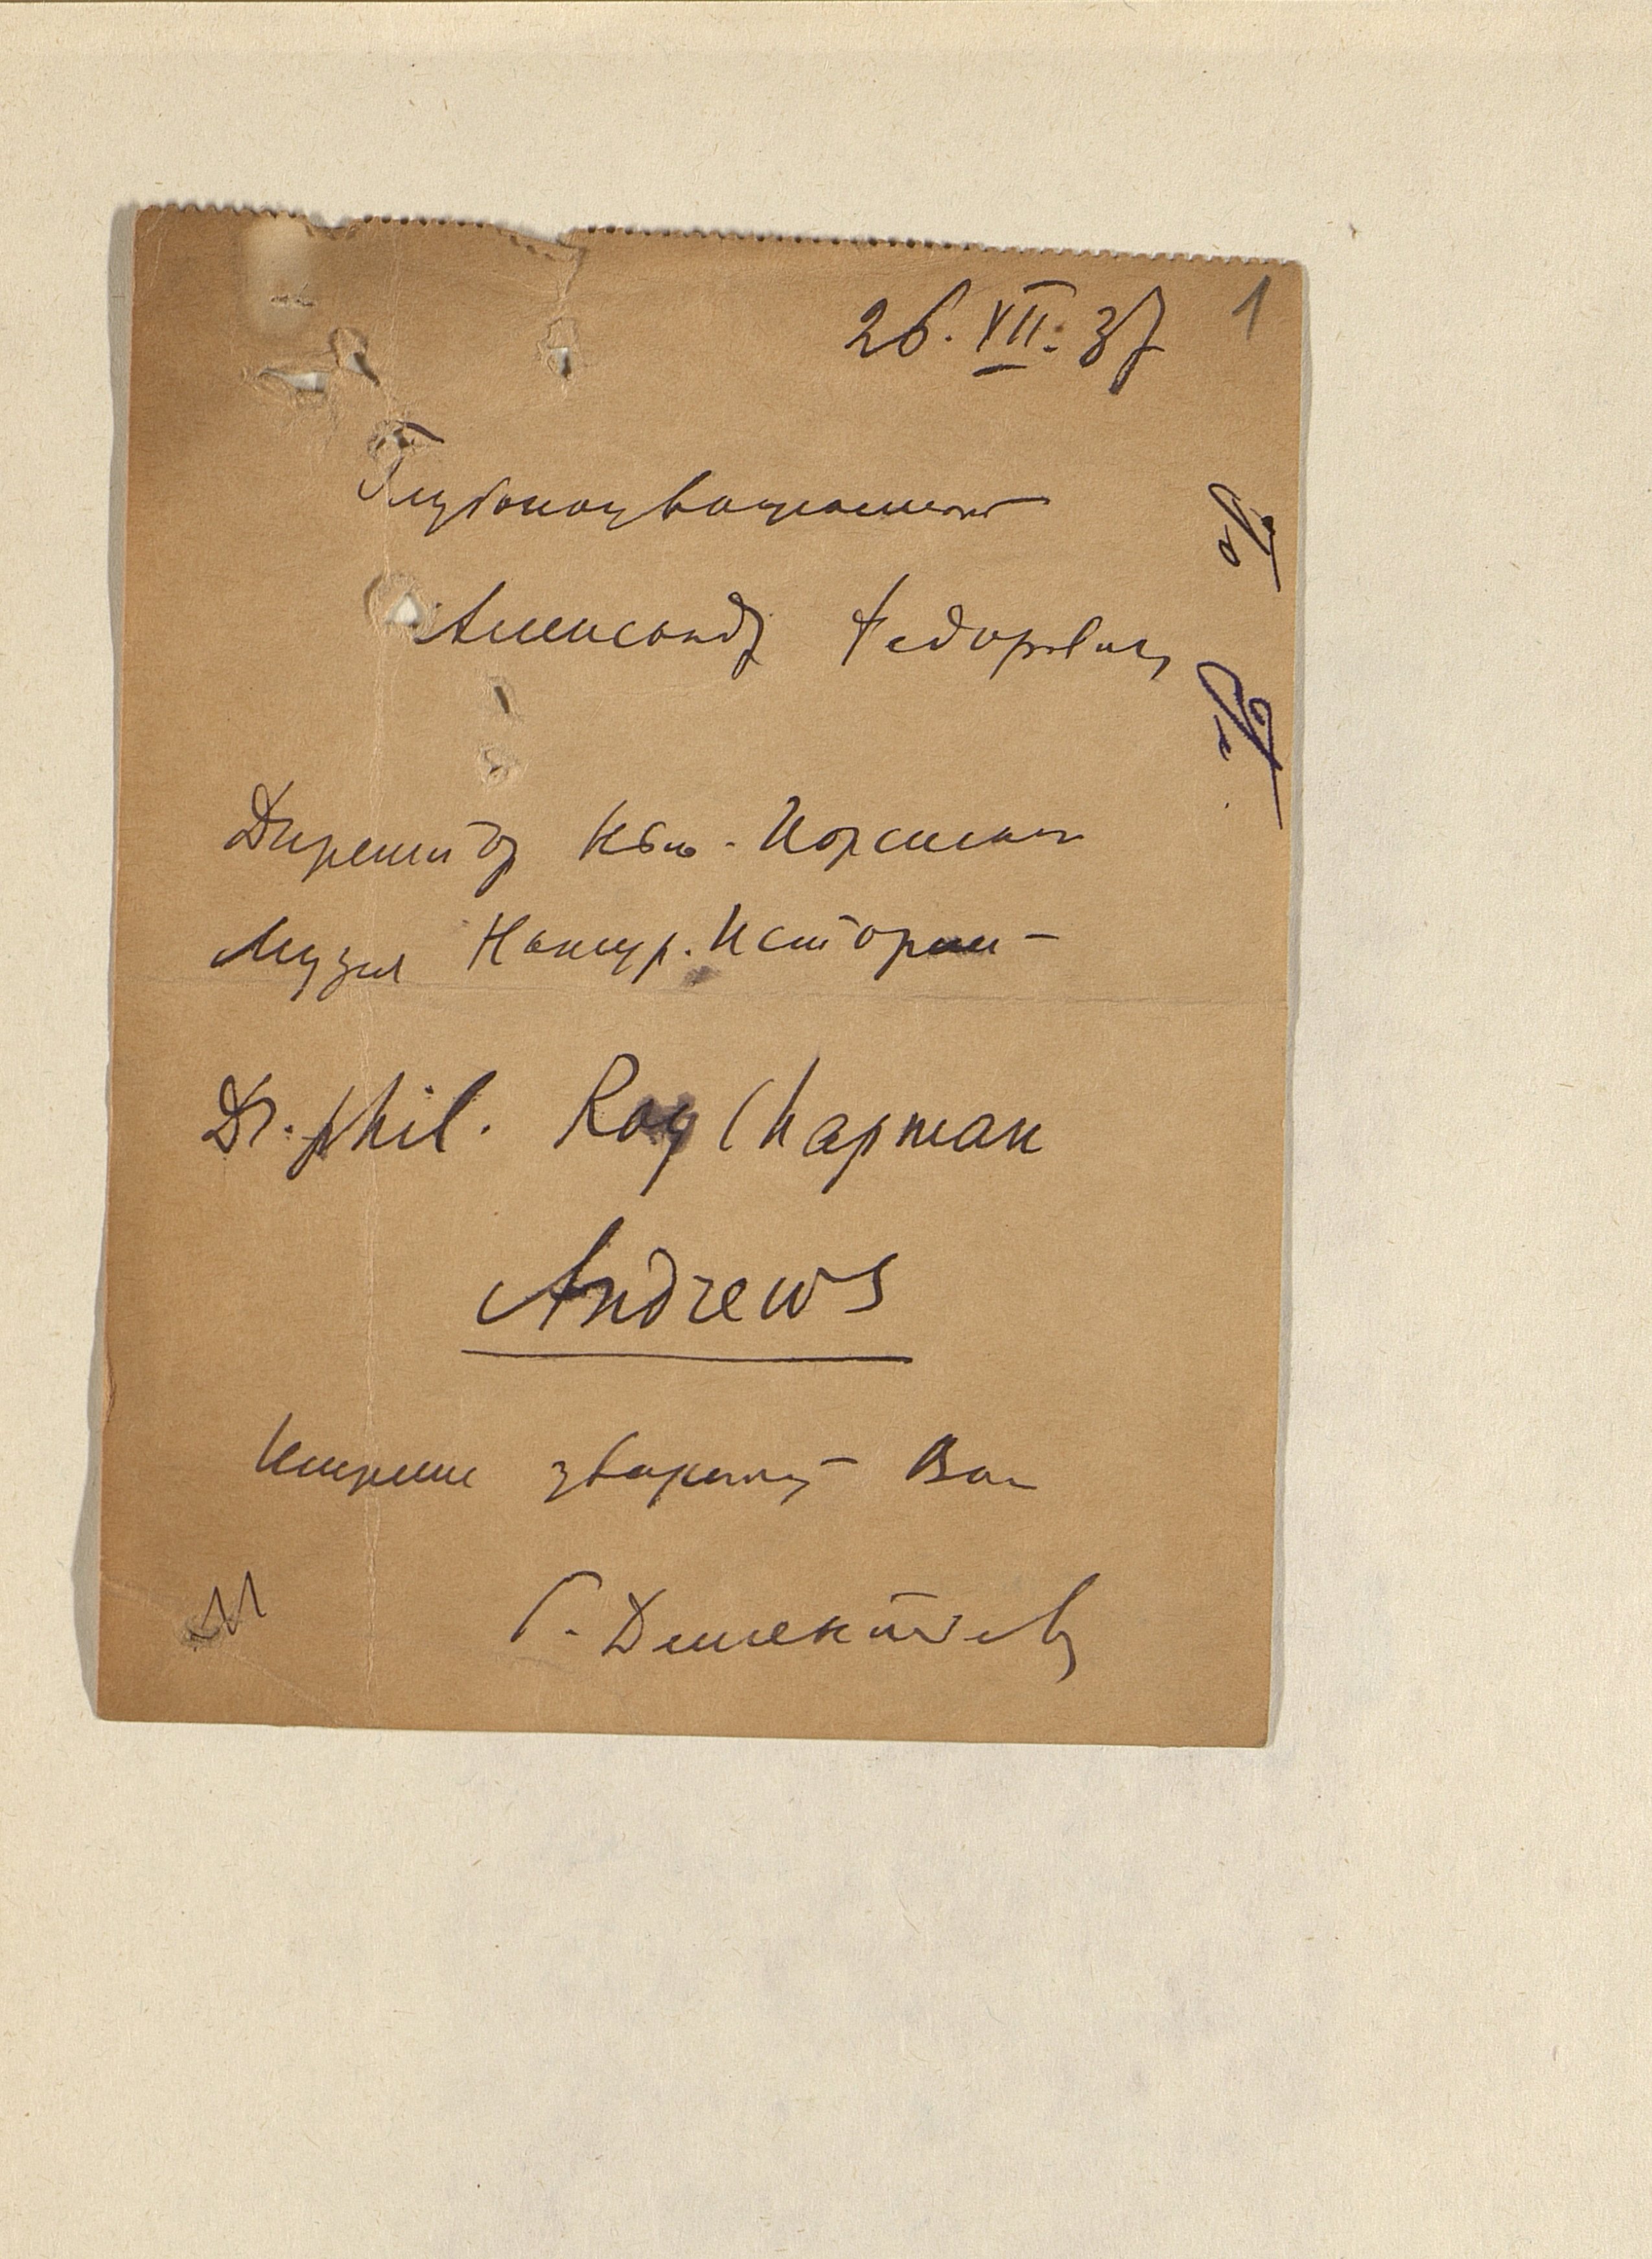 26.VII.37
1
Глубокоуважаемый
Александр Федорович,
Директор Нью-Йоркского
Музея Натур. Истории —
Dr. phil. Roy Chapman
Andrews
Искренне уважающий Вас
Г. Дементьев